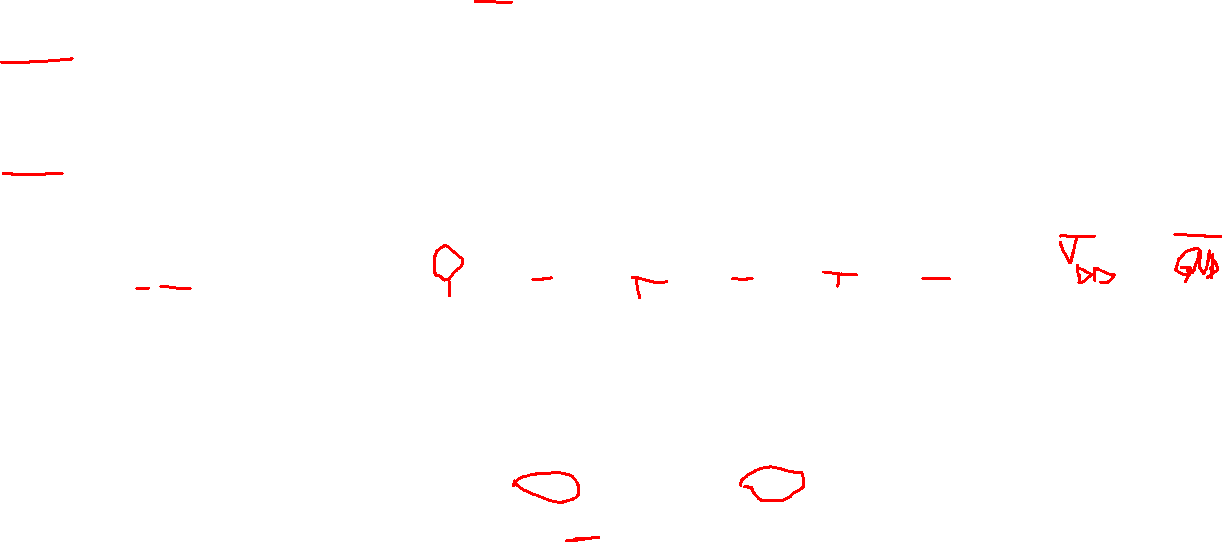 V_DD GND